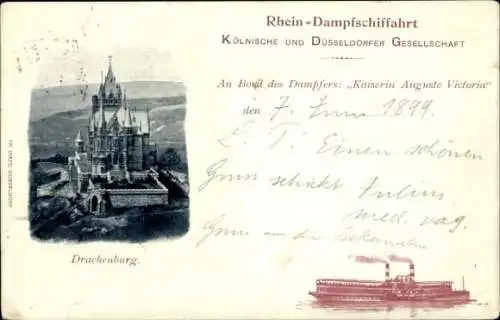 Rhein-Dampfschiffahrt
Kölnische und Düsseldorfer Gesellschaft
An Bord des Dampfers: „Kaiserin Auguste Victoria"
den 7. Juni 1899.
L. T. Einen schönen
Gruss schickt Julius
med. vag.
Gruss an die Bekannten
Drachenburg.